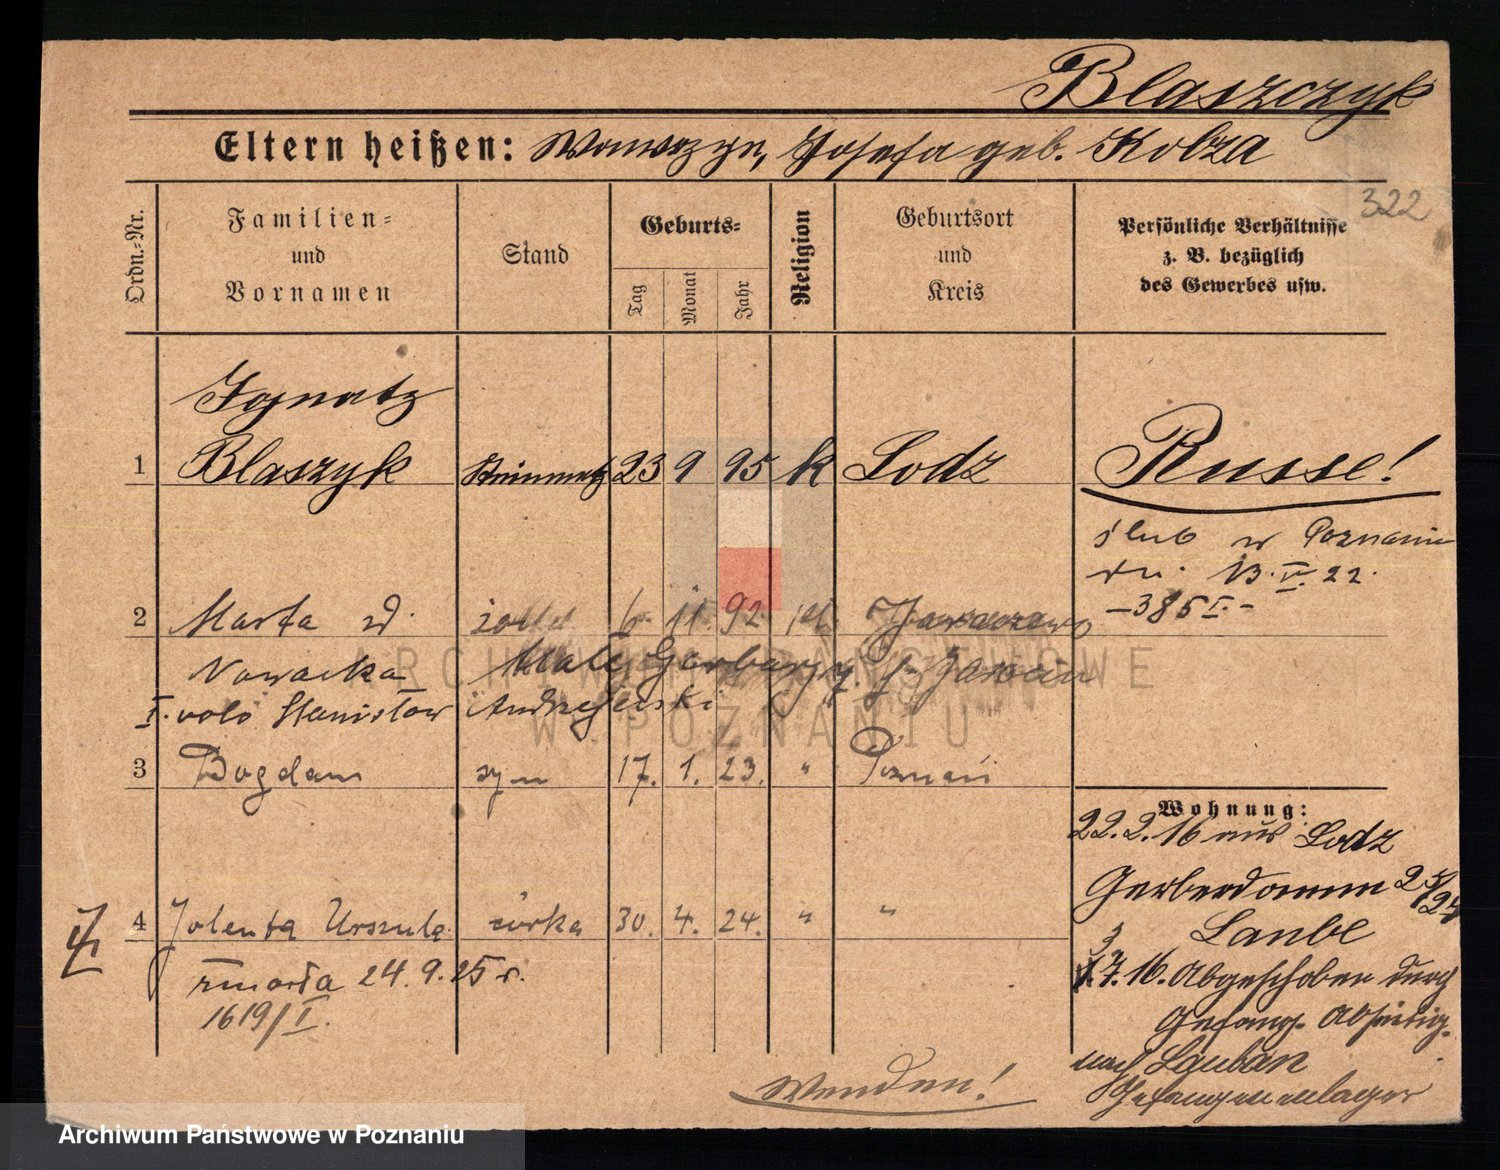 Blaszczyk
Eltern heißen: Wawrzyn, Josefa geb. Kobza
322
Ordn.-Nr.
Familien-
und
Vornamen
Stand
Geburts-
Tag
Monat
Jahr
Religion
Geburtsort
und
Kreis
Persönliche Verhältnisse
z. B. bezüglich
des Gewerbes usw.
Ignatz
1 Blaszyk Steinmetz 23 9 95 k Lodz Russe!
ślub w Poznaniu
dn. 13. V. 22.
-385 I.-
2 Marta z d. żona 6. 11. 92.
Nowacka Małe Garbary
I. voto Stanisław Andrzejewski
ARCHIWUM PAŃSTWOWE
W POZNANIU
3 Bogdan syn 17. 1. 23. " Poznań
Wohnung:
22.2.16 aus Lodz
Gerberdamm
4 Jolenta Urszula córka 30. 4. 24. " "
zmarła 24.9.25 r.
1619/I.
Laube
.7.16. Abgeschoben durch
nach Lauban
Gefangenenlager
Wenden!
Archiwum Państwowe w Poznaniu